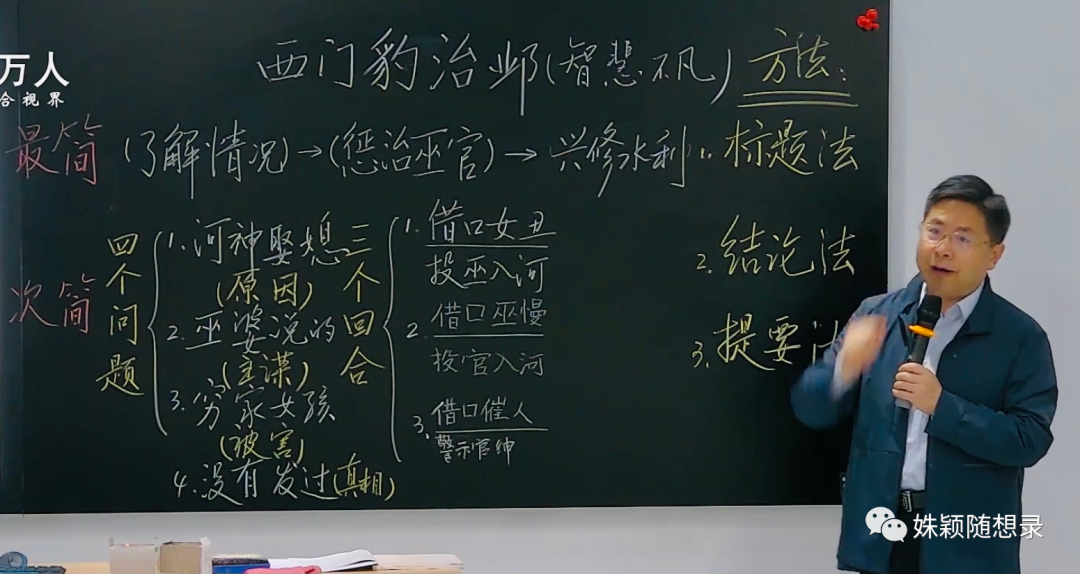 万人
合视界
西门豹治邺(智慧不凡) 方法:
最简 (了解情况)→(惩治巫官)→兴修水利 1.标题法
次简
四个问题
1.河神娶媳
(原因)
2.巫婆说的
(主谋)
3.穷家女孩
(被害)
4.没有发过(真相)
三个回合
1.借口女丑
投巫入河
2.借口巫慢
投官入河
3.借口催人
警示官绅
2.结论法
3.提要法
姝颖随想录